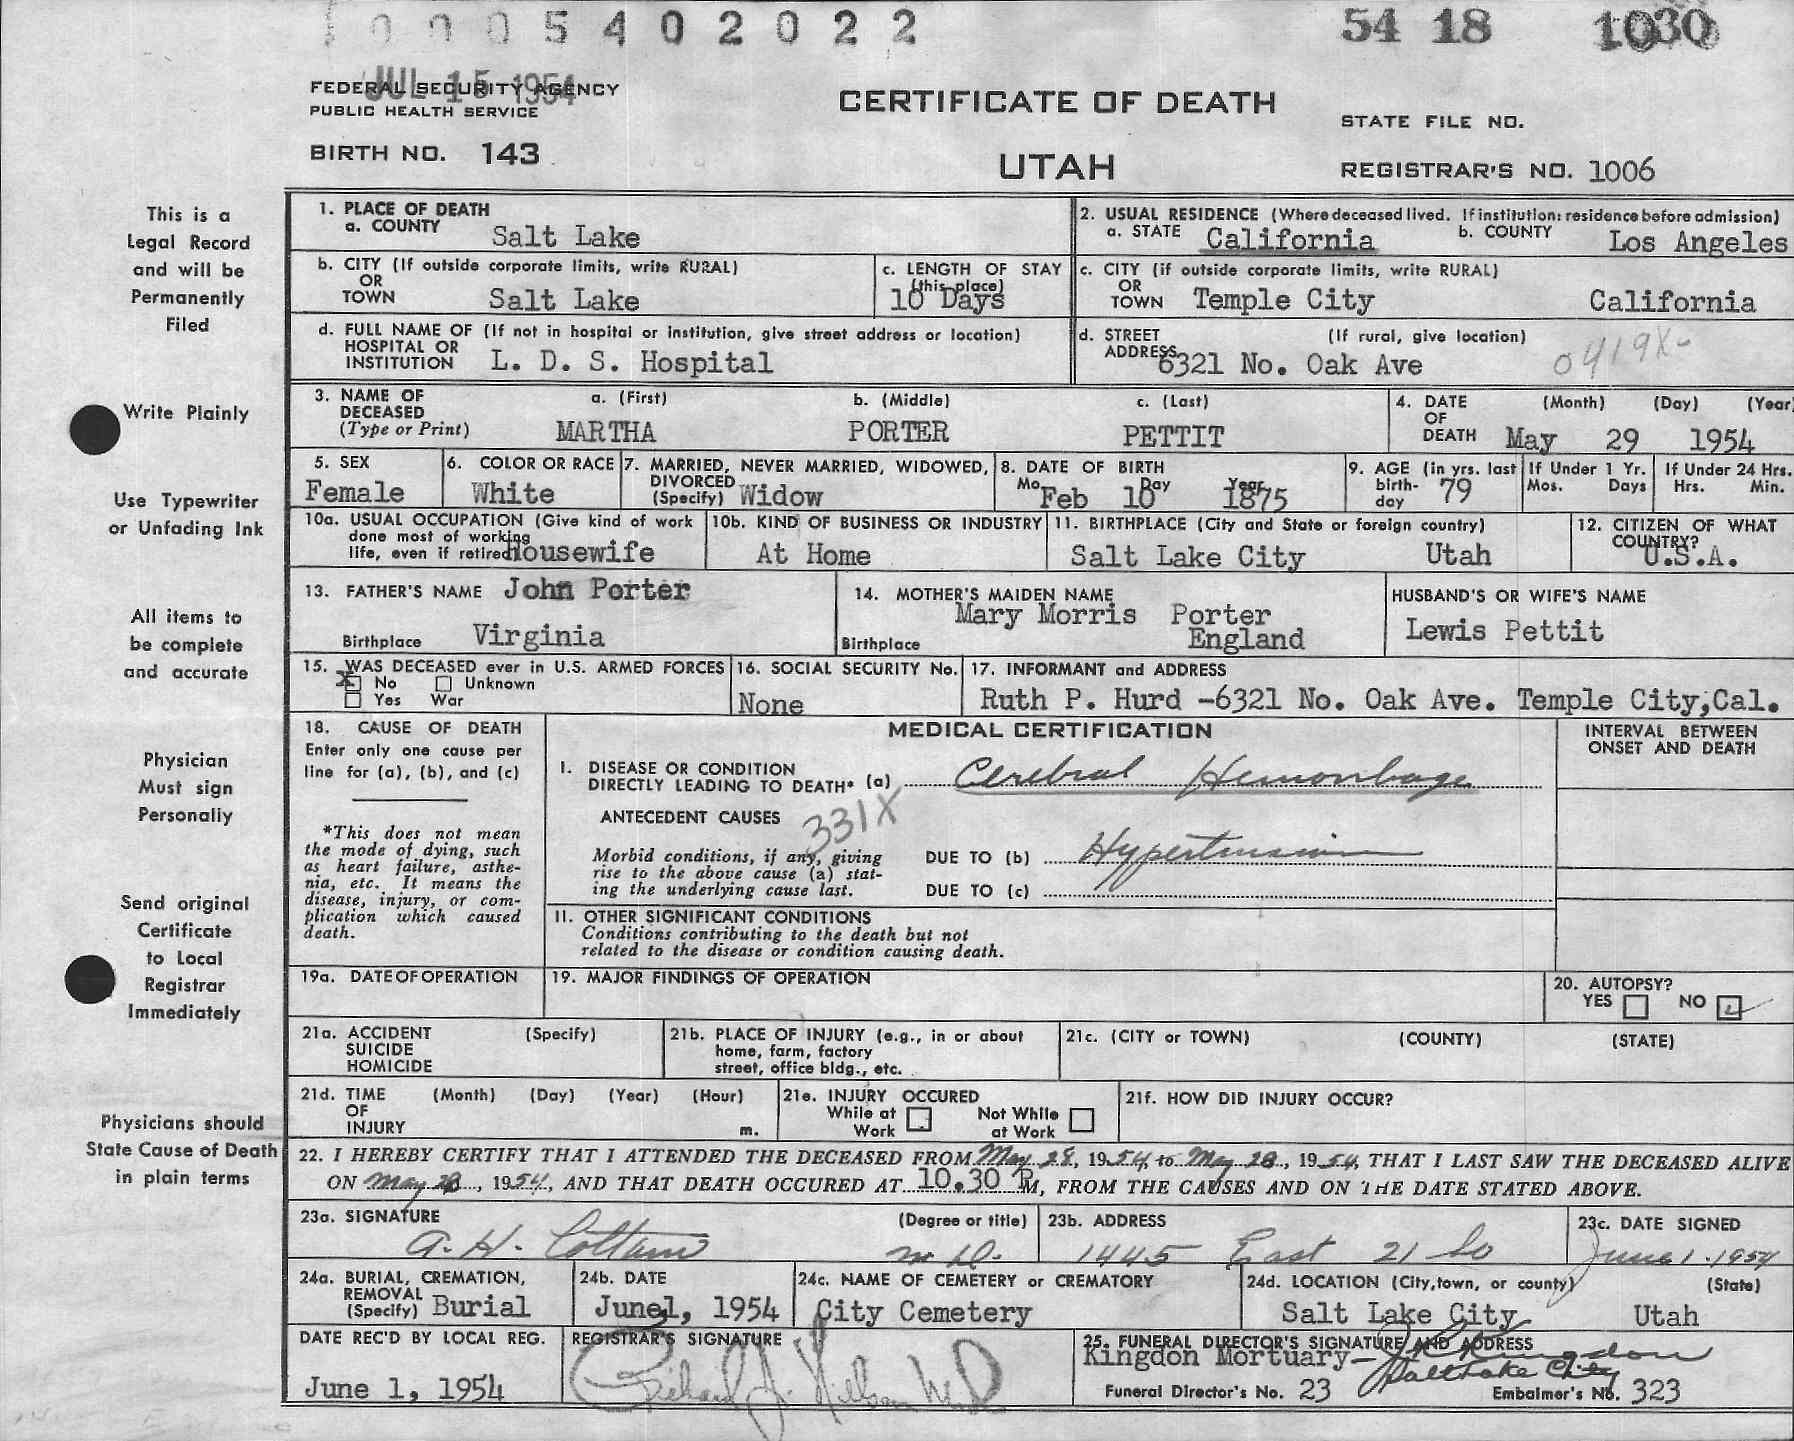 0005402022
54 18 1030
JUL 15 1954
FEDERAL SECURITY AGENCY
PUBLIC HEALTH SERVICE
CERTIFICATE OF DEATH
STATE FILE NO.
BIRTH NO. 143
UTAH
REGISTRAR'S NO. 1006
This is a
Legal Record
and will be
Permanently
Filed
Write Plainly
Use Typewriter
or Unfading Ink
All items to
be complete
and accurate
Physician
Must sign
Personally
Send original
Certificate
to Local
Registrar
Immediately
Physicians should
State Cause of Death
in plain terms
1. PLACE OF DEATH
a. COUNTY Salt Lake
2. USUAL RESIDENCE (Where deceased lived. If institution: residence before admission)
a. STATE California b. COUNTY Los Angeles
b. CITY (If outside corporate limits, write RURAL)
OR
TOWN Salt Lake
c. LENGTH OF STAY
(this place)
10 Days
c. CITY (if outside corporate limits, write RURAL)
OR
TOWN Temple City California
d. FULL NAME OF (If not in hospital or institution, give street address or location)
HOSPITAL OR
INSTITUTION L. D. S. Hospital
d. STREET (If rural, give location)
ADDRESS 6321 No. Oak Ave
0419X-
3. NAME OF
DECEASED
(Type or Print)
a. (First) b. (Middle) c. (Last)
MARTHA PORTER PETTIT
4. DATE (Month) (Day) (Year)
OF
DEATH May 29 1954
5. SEX
Female
6. COLOR OR RACE
White
7. MARRIED, NEVER MARRIED, WIDOWED,
DIVORCED
(Specify) Widow
8. DATE OF BIRTH
Mo. Day Year
Feb 10 1875
9. AGE (in yrs. last
birth-
day 79
If Under 1 Yr.
Mos. Days
If Under 24 Hrs.
Hrs. Min.
10a. USUAL OCCUPATION (Give kind of work
done most of working
life, even if retired Housewife
10b. KIND OF BUSINESS OR INDUSTRY
At Home
11. BIRTHPLACE (City and State or foreign country)
Salt Lake City Utah
12. CITIZEN OF WHAT
COUNTRY?
U.S.A.
13. FATHER'S NAME John Porter
Birthplace Virginia
14. MOTHER'S MAIDEN NAME
Mary Morris Porter
Birthplace England
HUSBAND'S OR WIFE'S NAME
Lewis Pettit
15. WAS DECEASED ever in U.S. ARMED FORCES
X No Unknown
Yes War
16. SOCIAL SECURITY No.
None
17. INFORMANT and ADDRESS
Ruth P. Hurd -6321 No. Oak Ave. Temple City,Cal.
18. CAUSE OF DEATH
Enter only one cause per
line for (a), (b), and (c)
*This does not mean
the mode of dying, such
as heart failure, asthe-
nia, etc. It means the
disease, injury, or com-
plication which caused
death.
MEDICAL CERTIFICATION
INTERVAL BETWEEN
ONSET AND DEATH
I. DISEASE OR CONDITION
DIRECTLY LEADING TO DEATH* (a) Cerebral Hemorrhage
ANTECEDENT CAUSES
331X
Morbid conditions, if any, giving
rise to the above cause (a) stat-
ing the underlying cause last.
DUE TO (b) Hypertension
DUE TO (c)
II. OTHER SIGNIFICANT CONDITIONS
Conditions contributing to the death but not
related to the disease or condition causing death.
19a. DATE OF OPERATION
19. MAJOR FINDINGS OF OPERATION
20. AUTOPSY?
YES NO
21a. ACCIDENT (Specify)
SUICIDE
HOMICIDE
21b. PLACE OF INJURY (e.g., in or about
home, farm, factory
street, office bldg., etc.
21c. (CITY or TOWN) (COUNTY) (STATE)
21d. TIME (Month) (Day) (Year) (Hour)
OF
INJURY m.
21e. INJURY OCCURED
While at Not While
Work at Work
21f. HOW DID INJURY OCCUR?
22. I HEREBY CERTIFY THAT I ATTENDED THE DECEASED FROM May 28, 1954, to May 28, 1954, THAT I LAST SAW THE DECEASED ALIVE
ON May 28, 1954, AND THAT DEATH OCCURED AT 10.30 P M, FROM THE CAUSES AND ON THE DATE STATED ABOVE.
23a. SIGNATURE (Degree or title)
A. H. Cottam M D.
23b. ADDRESS
1445 East 21 So
23c. DATE SIGNED
June 1 1954
24a. BURIAL, CREMATION,
REMOVAL
(Specify) Burial
24b. DATE
June 1, 1954
24c. NAME OF CEMETERY or CREMATORY
City Cemetery
24d. LOCATION (City,town, or county) (State)
Salt Lake City Utah
DATE REC'D BY LOCAL REG.
June 1, 1954
REGISTRAR'S SIGNATURE
25. FUNERAL DIRECTOR'S SIGNATURE AND ADDRESS
Kingdon Mortuary- Kingdon
Salt Lake City
Funeral Director's No. 23 Embalmer's No. 323